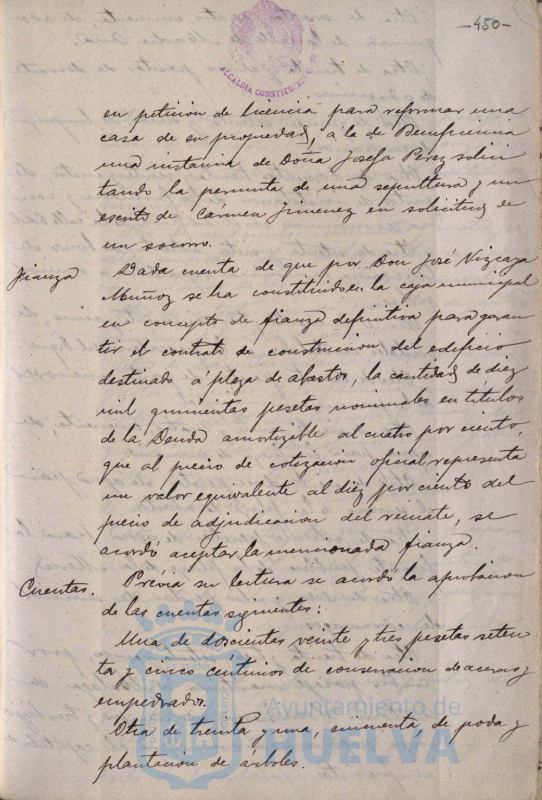 -450-
ALCALDIA CONSTITUCIONAL
en peticion de licencia para reformar una
casa de su propiedad, á la de Beneficencia
una instancia de Doña Josefa Perez solici
tando la permuta de una sepultura y un
escrito de Cármen Jimenez en solicitud de
un socorro.
Fianza
Dada cuenta de que por Don José Vizcaya
Muñoz se ha constituido en la caja municipal
en concepto de fianza definitiva para garan
tir el contrato de construccion del edificio
destinado á plaza de abastos, la cantidad de diez
mil quinientas pesetas nominales en títulos
de la Deuda amortizable al cuatro por ciento,
que al precio de cotizacion oficial representa
un valor equivalente al diez por ciento del
precio de adjudicacion del remate, se
acordó aceptar la mencionada fianza.
Cuentas.
Prévia su lectura se acordó la aprobacion
de las cuentas siguientes:
Una de doscientas veinte y tres pesetas seten
ta y cinco céntimos de conservacion de aceras y
empedrados.
Otra de treinta y una, cincuenta, de poda y
plantacion de árboles.
Ayuntamiento de
HUELVA